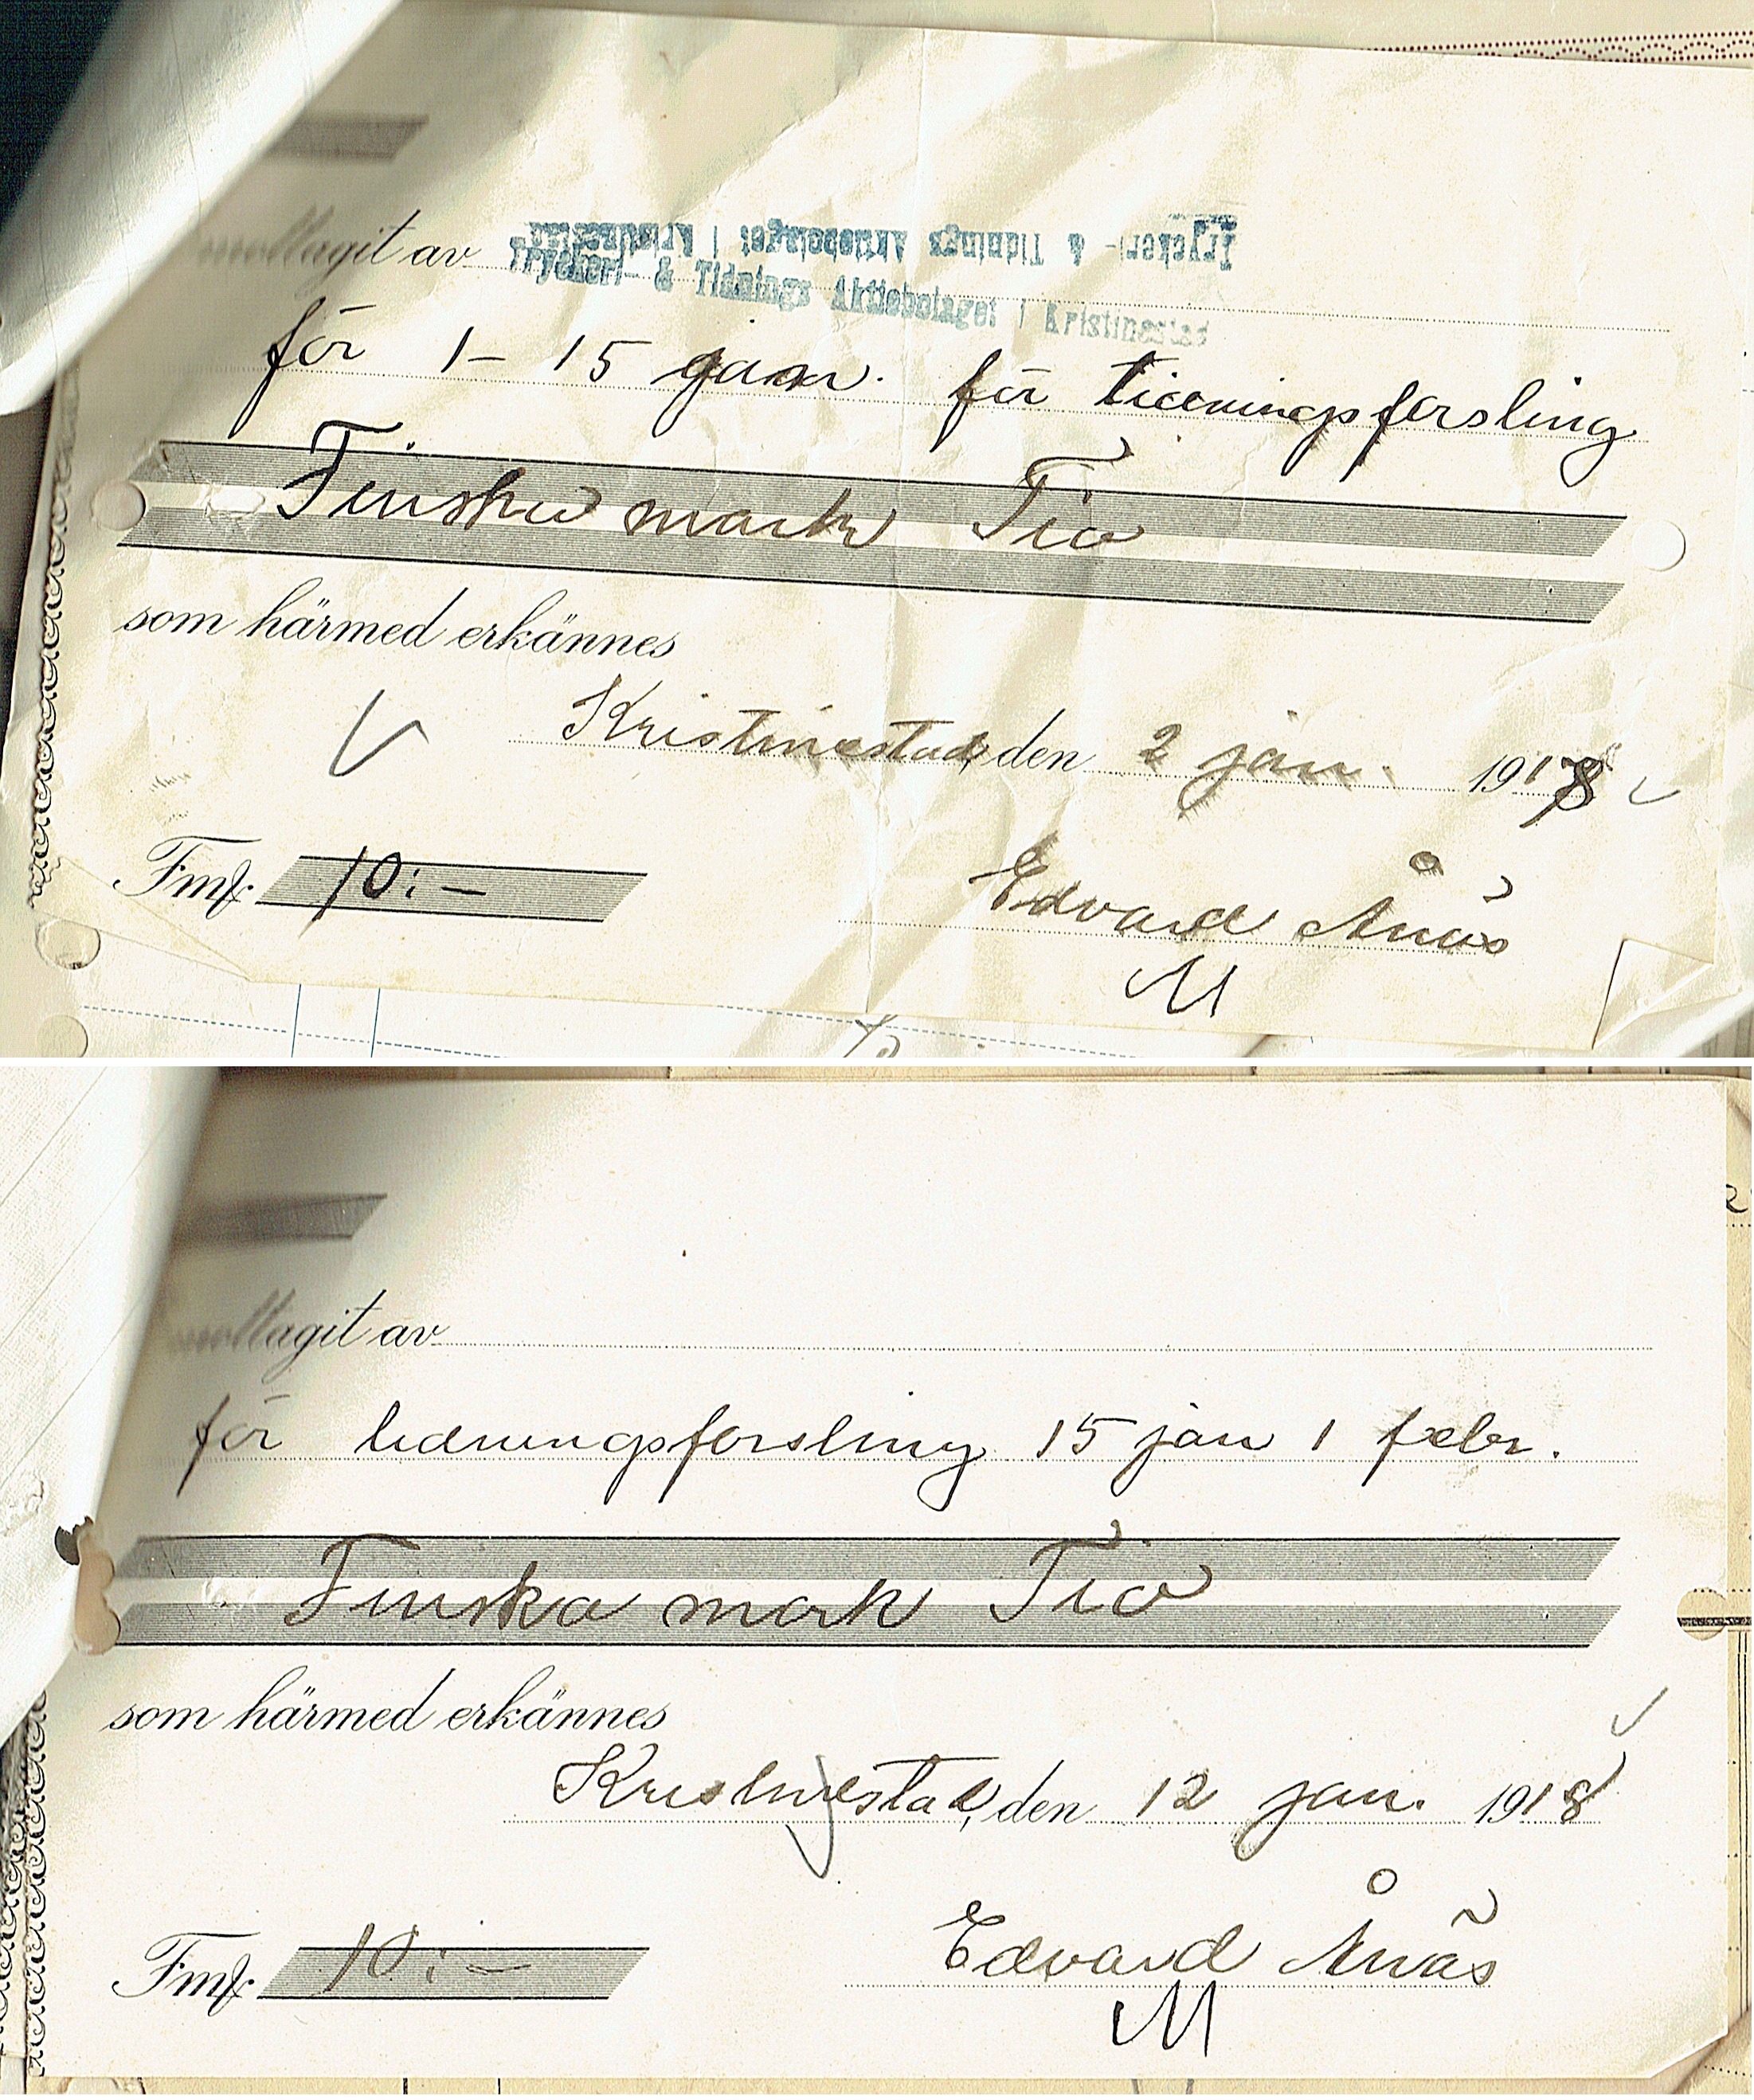 mottagit av
Tryckeri- & Tidnings Aktiebolaget i Kristinestad
Tryckeri- & Tidnings Aktiebolaget i Kristinestad
för 1 - 15 jan. för tidningsforsling
Finska mark Tio
som härmed erkännes
Kristinestad, den 2 jan. 1918
Fmk. 10:-
Edvard Ånäs
M
mottagit av
för tidningsforsling 15 jan 1 febr.
Finska mark Tio
som härmed erkännes
Kristinestad, den 12 jan. 1918
Fmk. 10:-
Edvard Ånäs
M